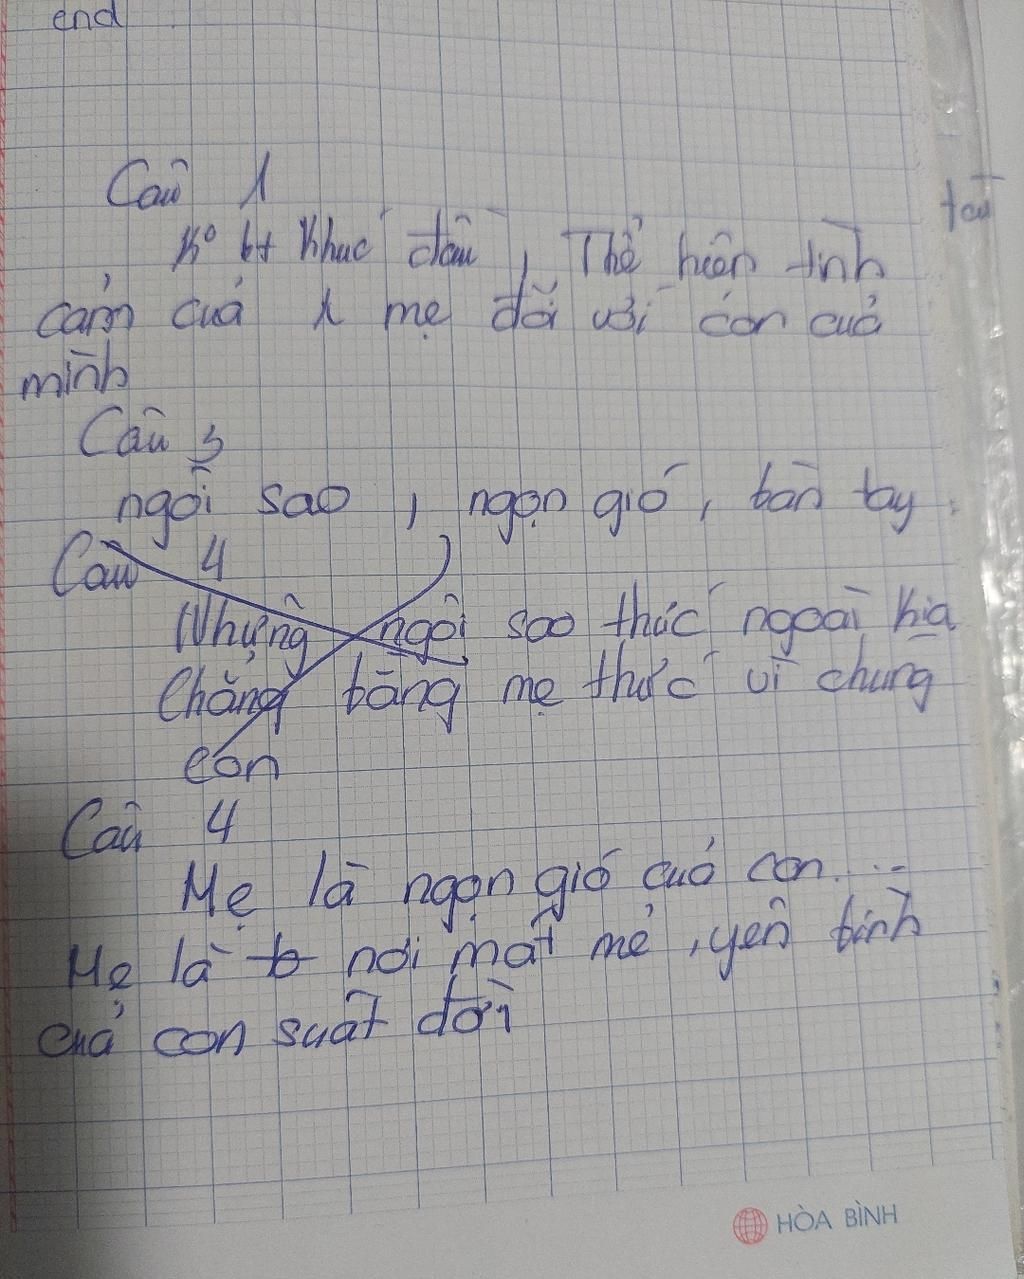 end
Câu 1
K° bt khúc đầu, Thể hiện tình
cảm của 1 mẹ đối với con của
mình
Câu 3
ngôi sao, ngọn gió, bàn tay.
Câu 4
Những ngôi sao thức ngoài kia
Chẳng bằng mẹ thức vì chúng
con
Câu 4
Mẹ là ngọn gió của con...
Mẹ là nơi mát mẻ, yên bình
của con suất đời
HÒA BÌNH